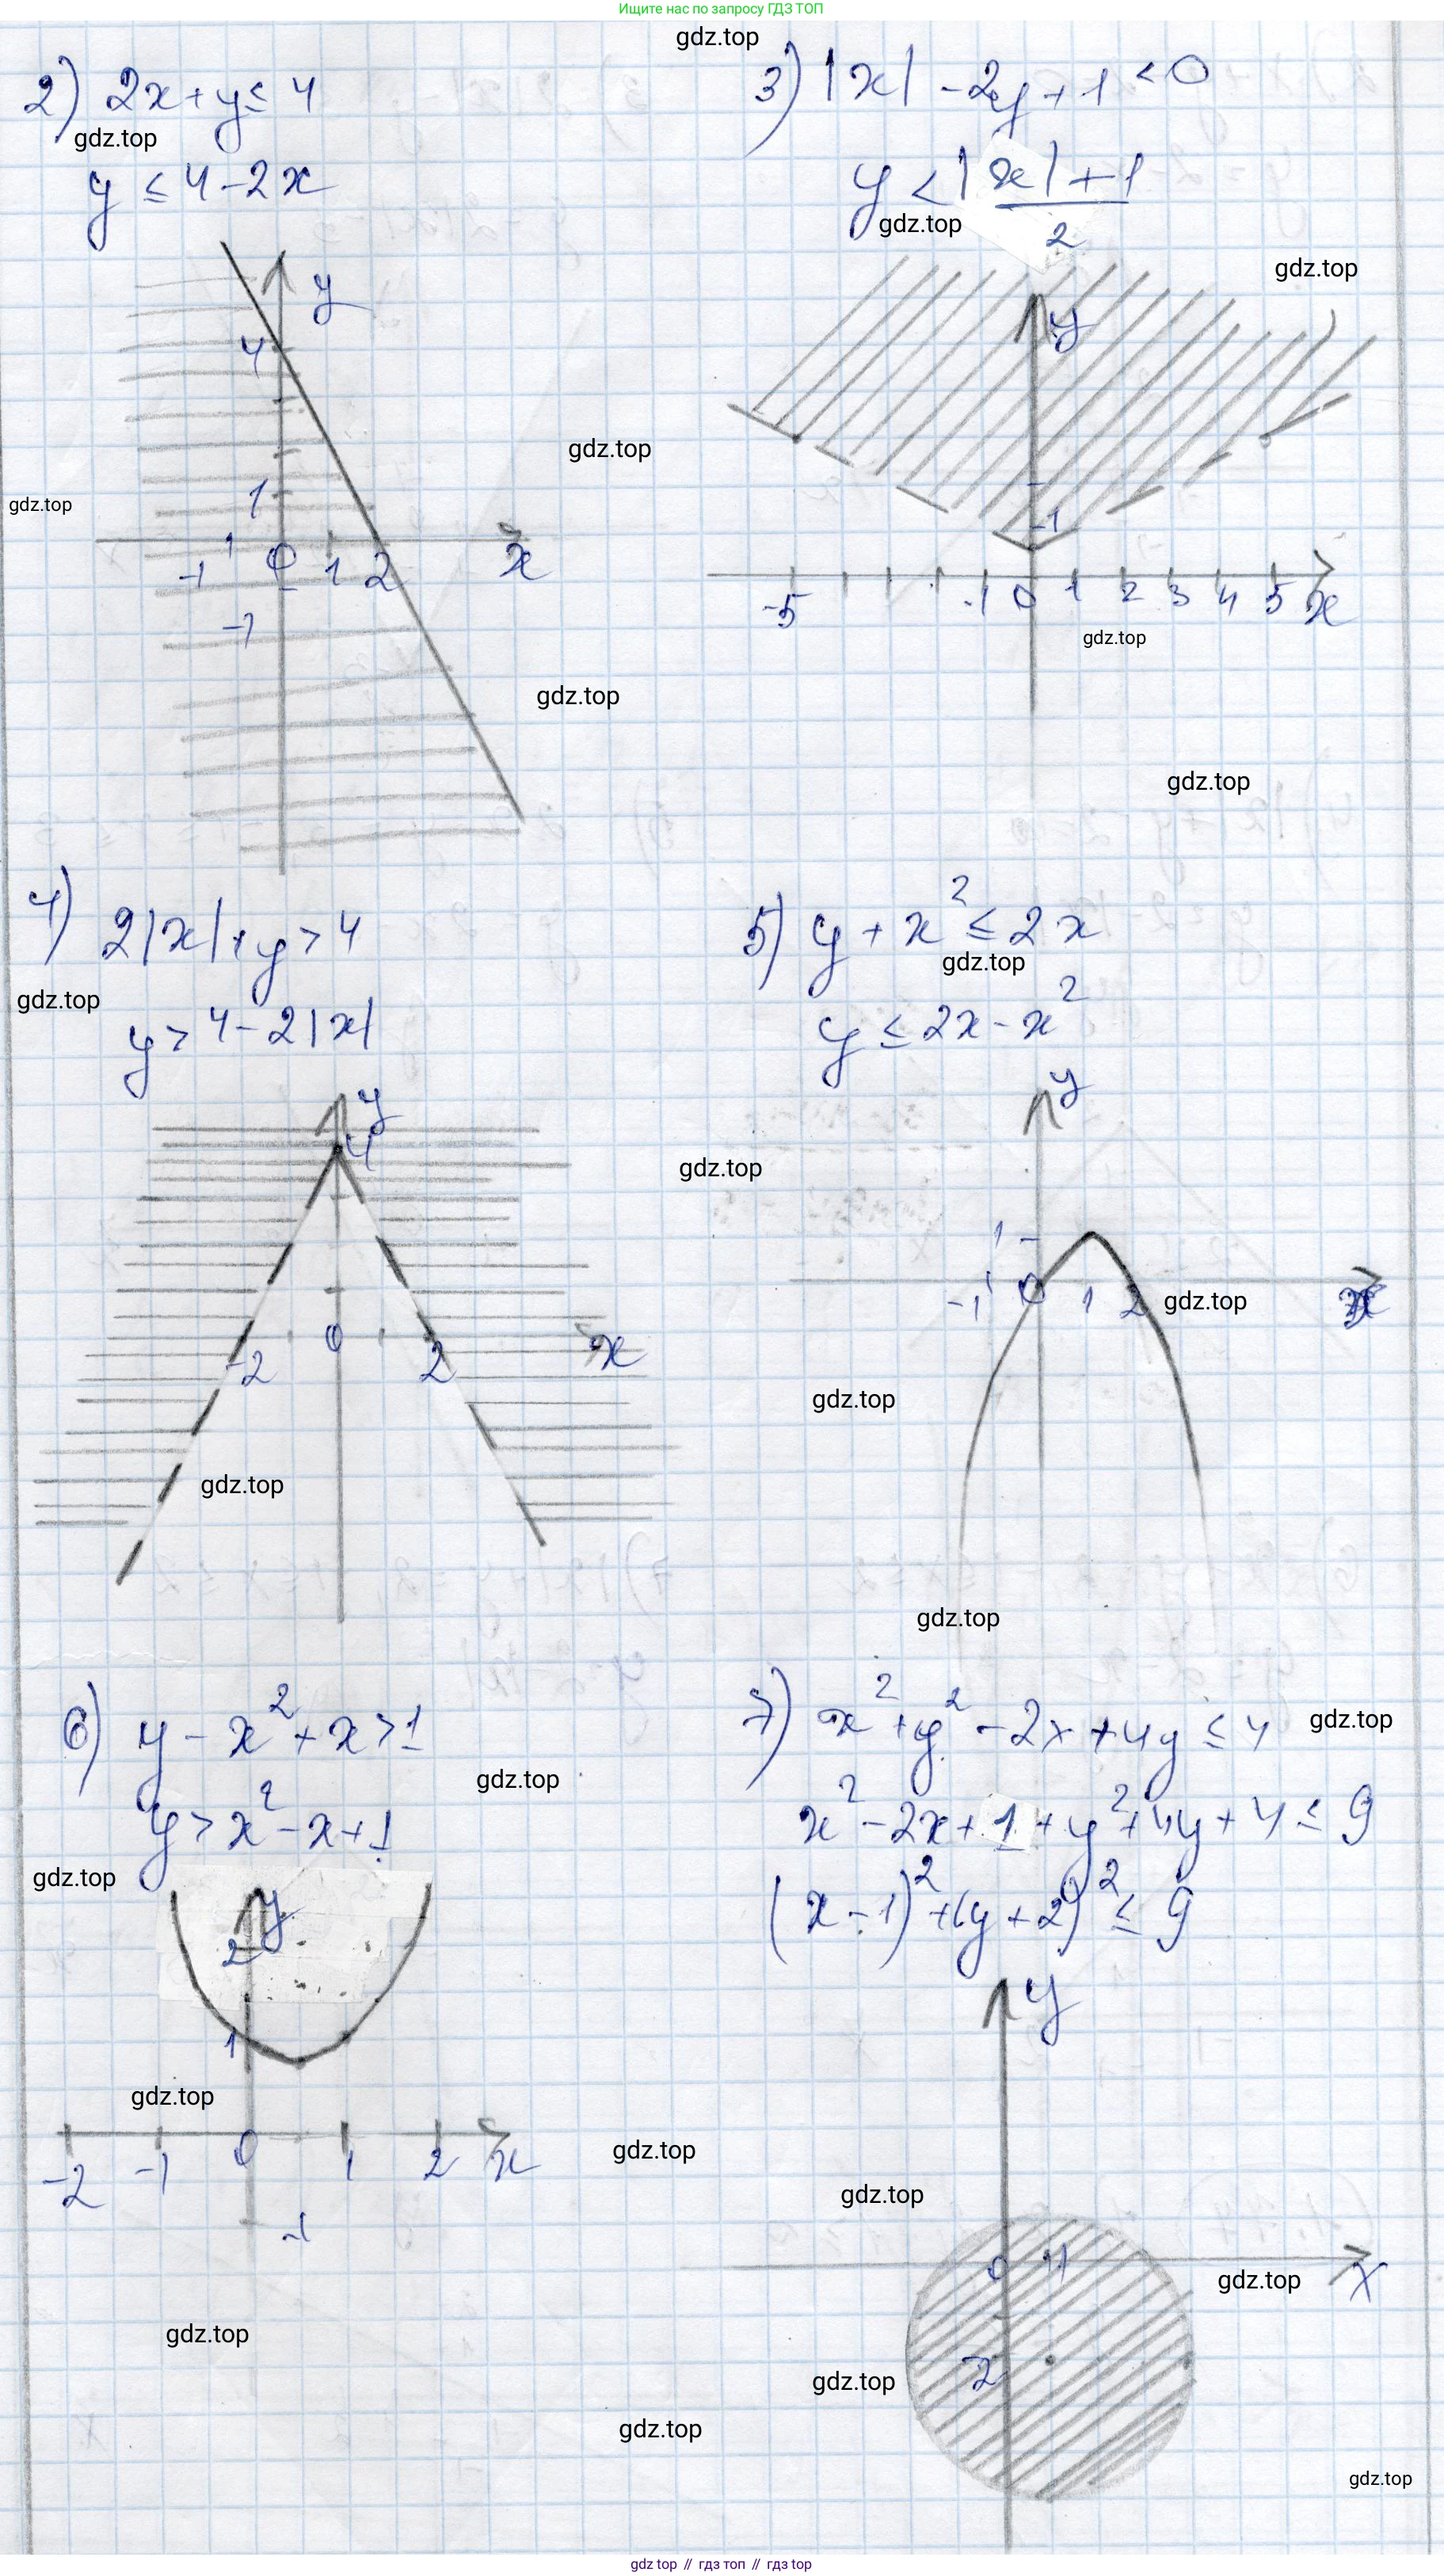 Ищите нас по запросу ГДЗ ТОП
gdz.top
2) 2x+y≤4
gdz.top
y ≤ 4-2x
3) |x| -2y+1 <0
y < |x|+1
2
gdz.top
gdz.top
y
4
1
-1 0 1 2 x
-1
gdz.top
gdz.top
gdz.top
y
1
-5 -1 0 1 2 3 4 5 x
gdz.top
gdz.top
4) 2|x|+y>4
gdz.top
y>4-2|x|
5) y+x²≤2x
gdz.top
y≤2x-x²
y
4
-2 0 2 x
gdz.top
gdz.top
y
1
-1 0 1 2 x
gdz.top
gdz.top
gdz.top
6) y-x²+x>1
gdz.top
y>x²-x+1
gdz.top
7) x²+y²-2x+4y≤4
gdz.top
x²-2x+1+y²+4y+4≤9
(x-1)²+(y+2)²≤9
y
2
1
gdz.top
-2 -1 0 1 2 x
-1
gdz.top
gdz.top
y
gdz.top
0 1 x
gdz.top
-2
gdz.top
gdz.top
gdz.top
gdz top // гдз топ // гдз top